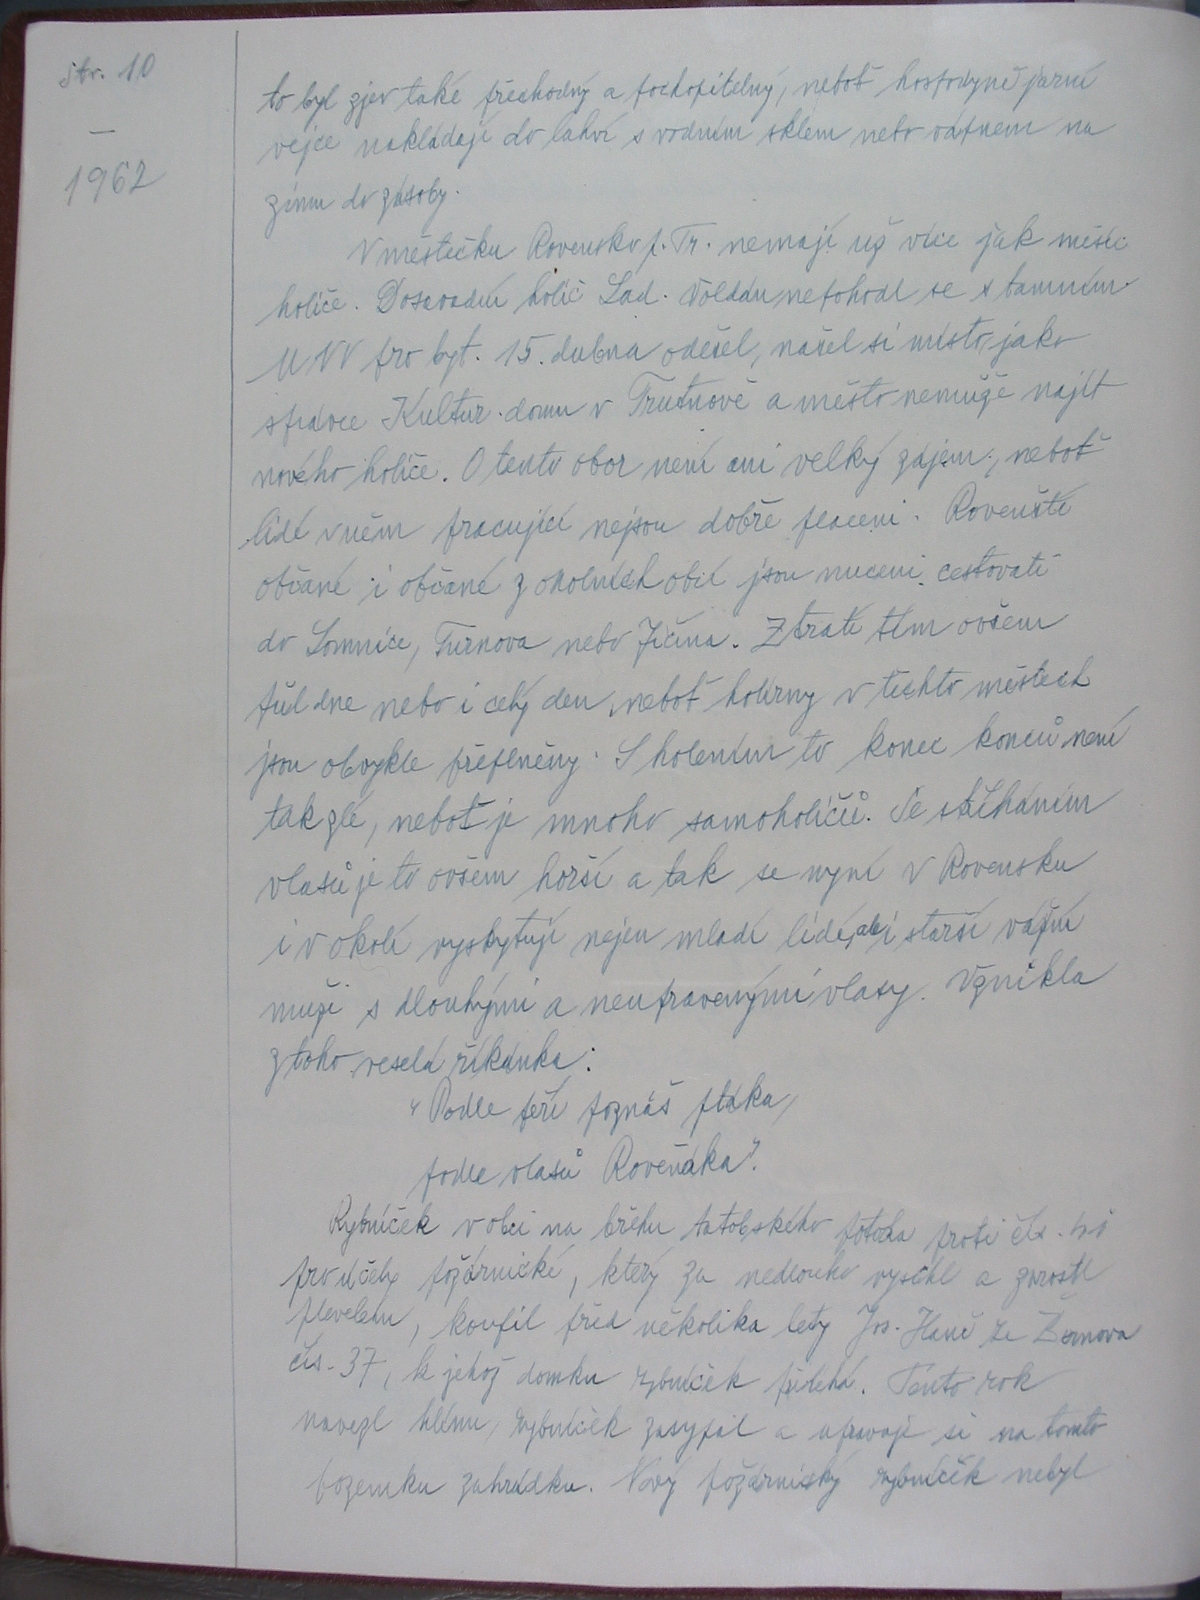 str. 10
—
1962
to byl zjev také přechodný a pochopitelný, neboť hospodyně jarní
vejce nakládají do lahví s vodním sklem nebo vápnem na
zimu do zásoby.
V městečku Rovensko p. Tr. nemají už více jak měsíc
holiče. Dosavadní holič Lad. Voldán nepohodl se s tamním
MNV pro byt. 15. dubna odešel, našel si místo jako
správce Kultur. domu v Trutnově a město nemůže najít
nového holiče. O tento obor není ani velký zájem, neboť
lidé v něm pracující nejsou dobře placeni. Rovenští
občané i občané z okolních obcí jsou nuceni cestovati
do Lomnice, Turnova nebo Jičína. Ztratí tím ovšem
půl dne nebo i celý den, neboť holírny v těchto městech
jsou obvykle přeplněny. S holením to konec konců není
tak zlé, neboť je mnoho samoholičů. Se stříháním
vlasů je to ovšem horší a tak se nyní v Rovensku
i v okolí vyskytují nejen mladí lidé, ale i starší vážní
muži s dlouhými a neupravenými vlasy. Vznikla
z toho veselá říkanka:
"Podle peří poznáš ptáka,
podle vlasů Roveňáka".
Rybníček v obci na břehu tatobského potoka proti čís.
pro účely požárnické, který za nedlouho vyschl a zarostl
plevelem, koupil před několika lety Jos. Hanč ze Žernova
čís. 37, k jehož domku rybníček přiléhá. Tento rok
navezl hlínu, rybníček zasypal a upravuje si na tomto
pozemku zahrádku. Nový požárnický rybníček nebyl